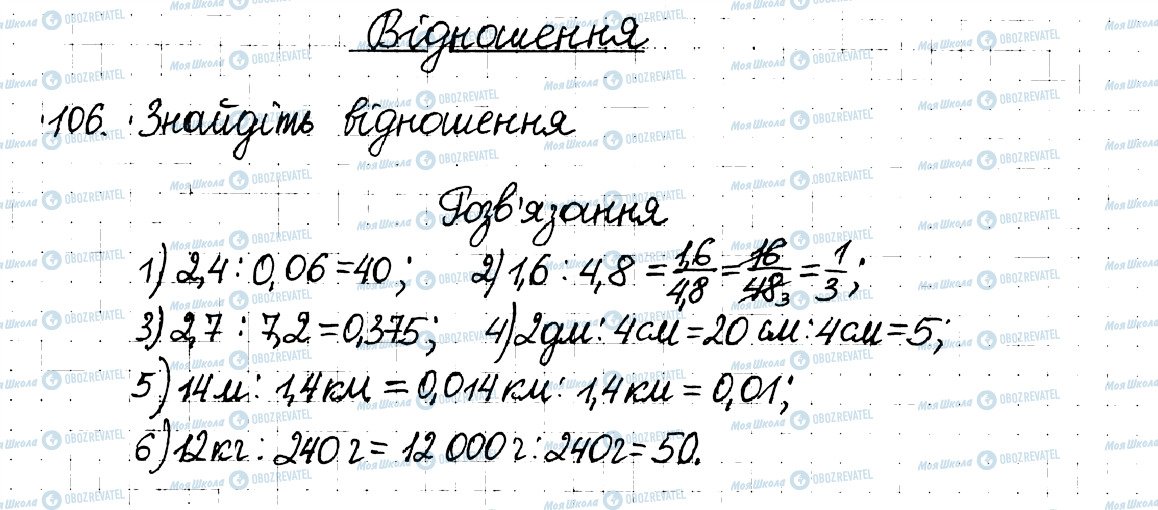 Відношення
106. Знайдіть відношення
Розв'язання
1) 2,4 : 0,06 = 40; 2) 1,6 : 4,8 = 1,6/4,8 = 16/48 3 = 1/3;
3) 2,7 : 7,2 = 0,375; 4) 2дм : 4см = 20 см : 4см = 5;
5) 14м : 1,4км = 0,014км : 1,4км = 0,01;
6) 12кг : 240г = 12 000г : 240г = 50.
Моя Школа OBOZREVATEL